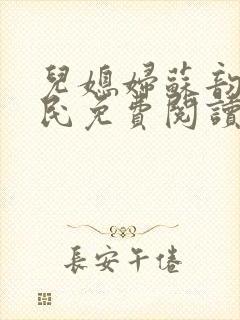 兒媳婦蘇韵
民免費閱讀
長安午倦